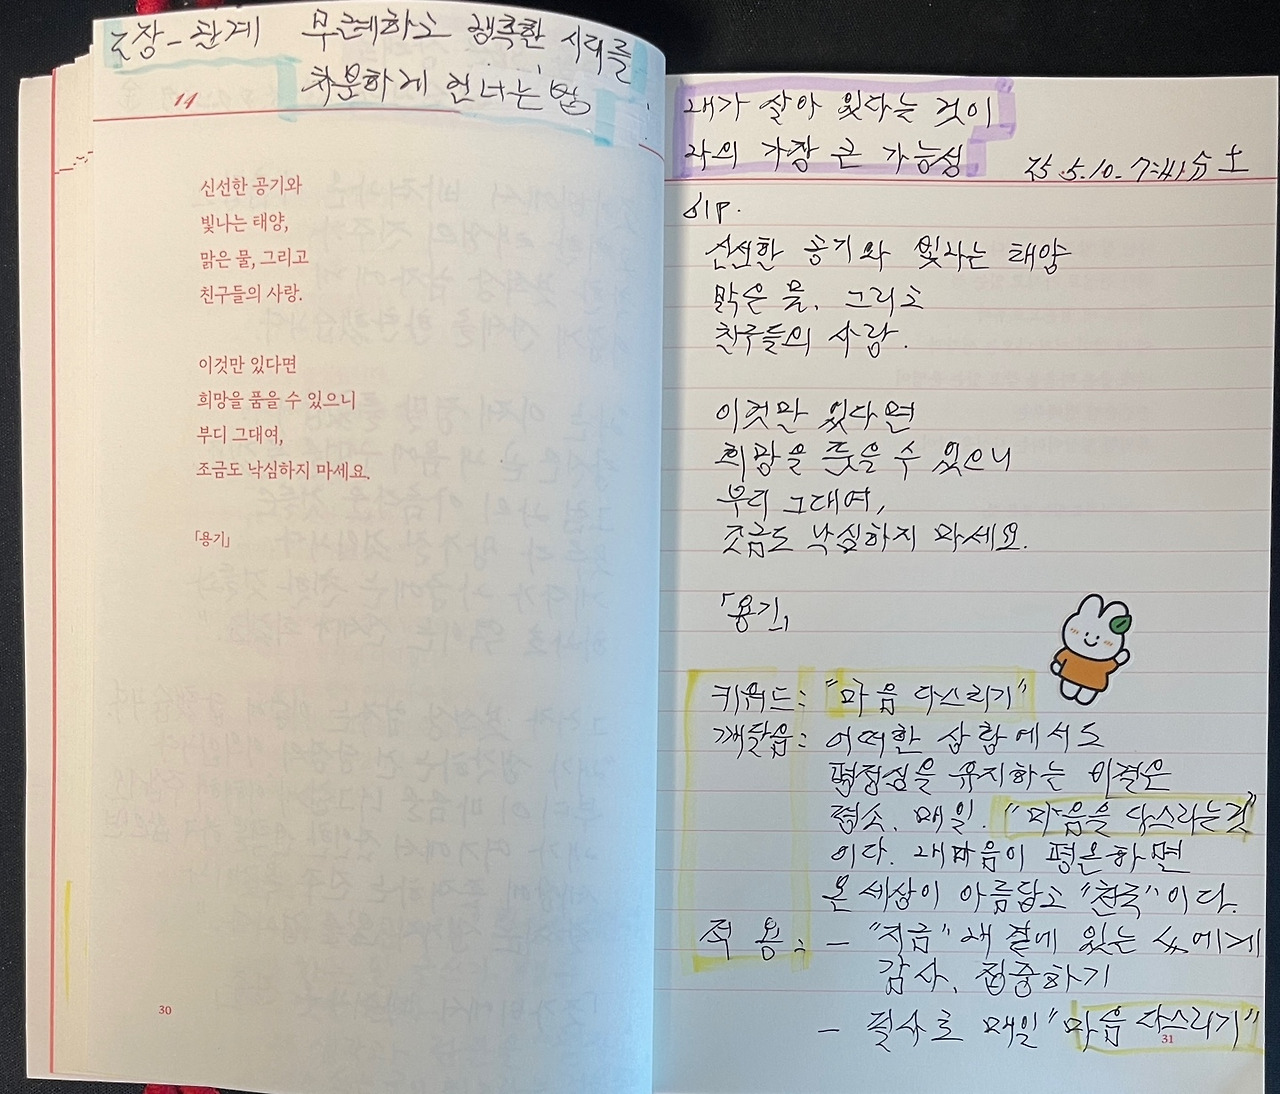 2장-관계 무례하고 행복한 시대를
차분하게 건너는 법
14
신선한 공기와
빛나는 태양,
맑은 물, 그리고
친구들의 사랑.
이것만 있다면
희망을 품을 수 있으니
부디 그대여,
조금도 낙심하지 마세요.
「용기」
30
내가 살아 있다는 것이
나의 가장 큰 가능성
25.5.10. 7:41分 土
31P.
신선한 공기와 빛나는 태양
맑은 물, 그리고
친구들의 사랑.
이것만 있다면
희망을 품을 수 있으니
부디 그대여,
조금도 낙심하지 마세요.
「용기」
키워드: "마음 다스리기"
깨달음: 어떠한 상황에서도
평정심을 유지하는 비결은
평소, 매일. "마음을 다스리는것"
이다. 내마음이 평온하면
온 세상이 아름답고 "천국"이다.
적용: - "지금" 내 곁에 있는 에게
감사, 집중하기
- 필사로 매일 "마음 다스리기"
31